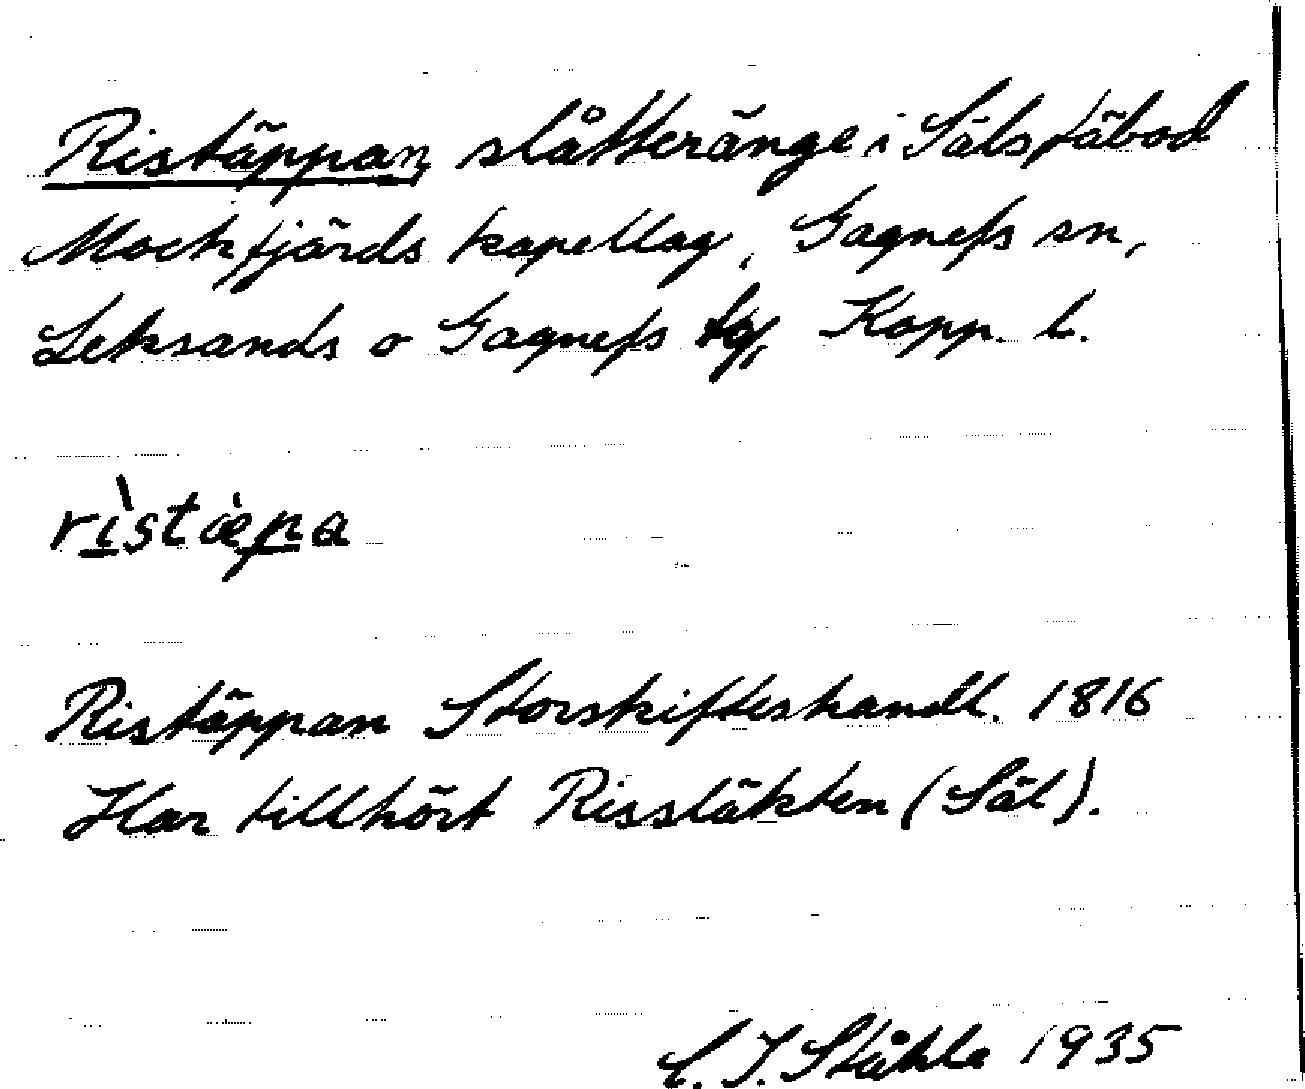 Ristäppan, slåtteränge i Säls fäbod
Mockfjärds kapellag, Gagnefs sn,
Leksands o Gagnefs tg, Kopp. l.
ristæpa
Ristäppan Storskifteshandl. 1816
Har tillhört Rissläkten (Säl).
C. I. Ståhle 1935